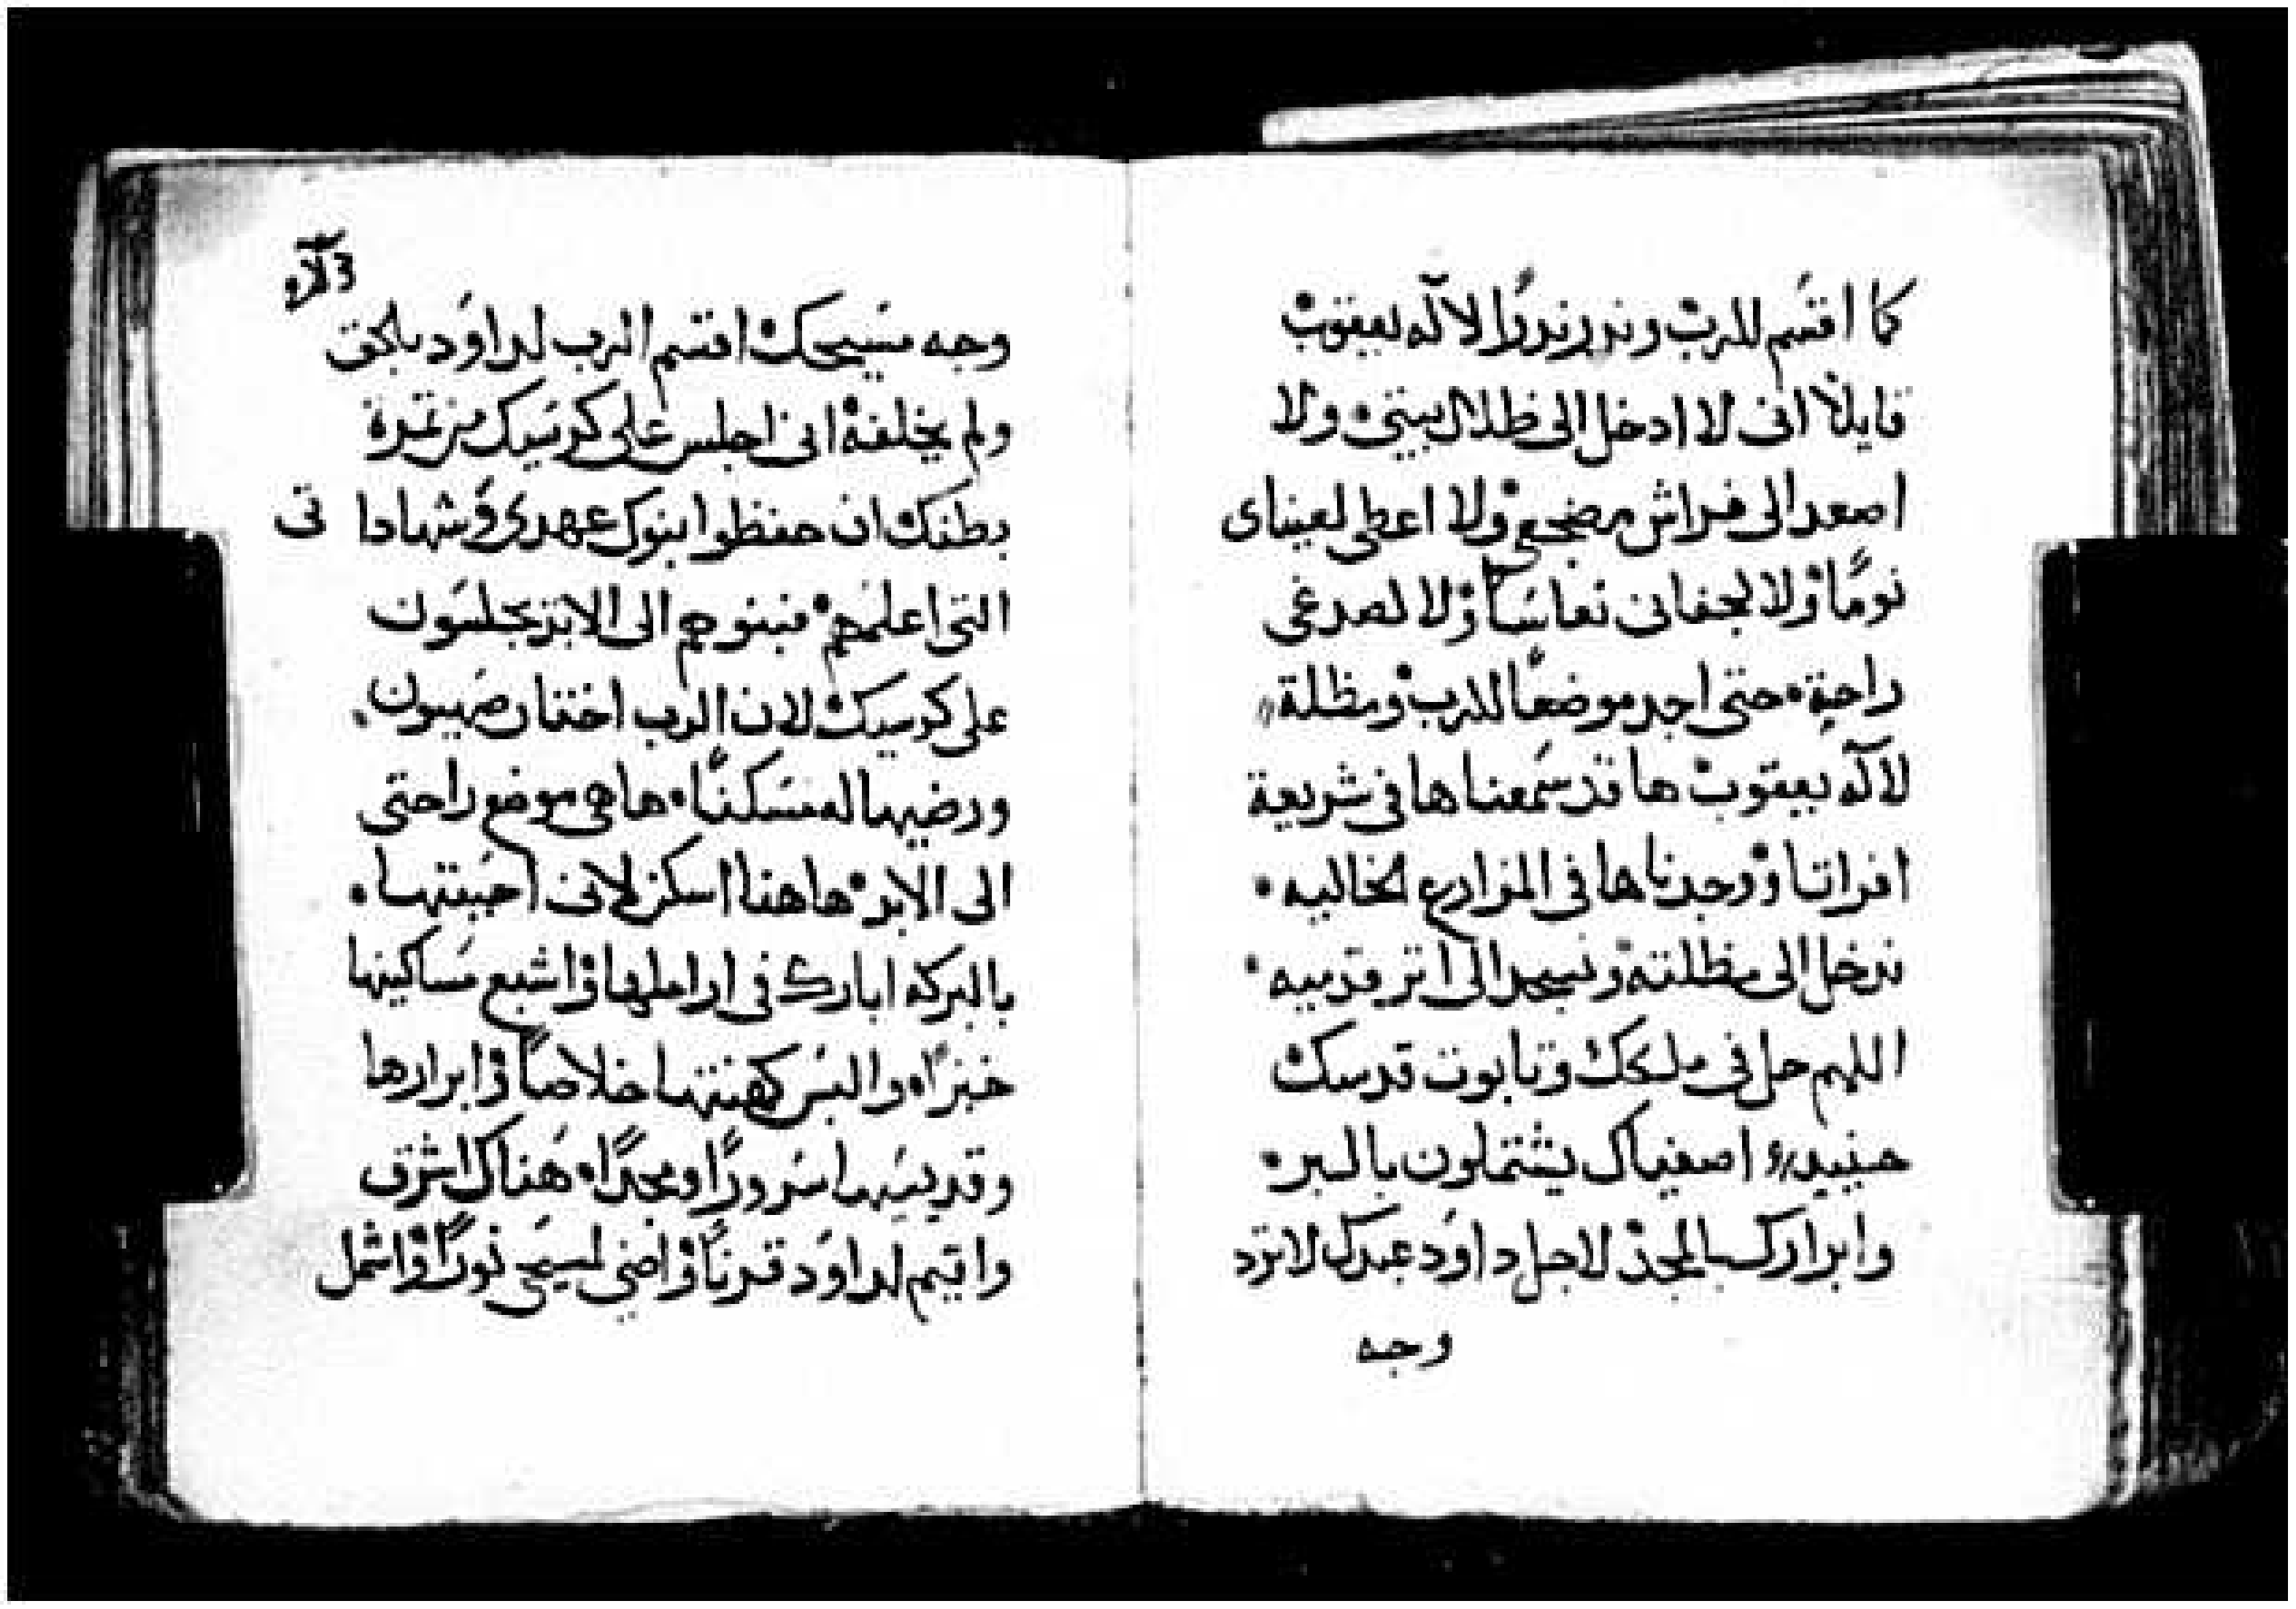 كما اقسَم للرب ونذر نذرًا لالآه يعقوب
قايلاً انى لا ادخل الى ظلال بيتى ولا
اصعد الى فراش مضجعى ولا اعطى لعيناى
نومًا ولا لجفانى نعاسًا ولا لصدغى
راحة حتى اجد موضعًا للرب ومظلة
لالآه يعقوب ها قد سَمعنا ها فى شريعة
افراتا ووجدناها فى المزارع الخاليه
ندخل الى مظلته ونسجد الى اثر قدميه
اللهم حل فى ملكك وتابوت قدسك
حينيد اصفياك يشتملون بالبر
وابرارك بالمجد لاجل داوَد عبدك لا ترد
وجه
وجه مسَيحك اقسم الرب لداوَد بالحق
ولم يخلفه انى اجلس على كرسَيك من تمرة
بطنك ان حفظوا بنوك عهدى وشهاداتى
التى اعلمهم فبنوهم الى الابد يجلسَون
على كرسيك لان الرب اختار صَهيون
ورضيها له مسَكنًا ها هى موضع راحتى
الى الابد هاهنا اسكن لانى احَببتها
بالبركه ابارك فى اراملها واشبع مسَاكينها
خبزًا والبسَ كهنتها خلاصًا وابرارها
وقديسَيها سَرورًا ومجدًا هَناك اشرق
واقيم لداوَد قرنًا واضى لمسيَحى نورًا واشمل